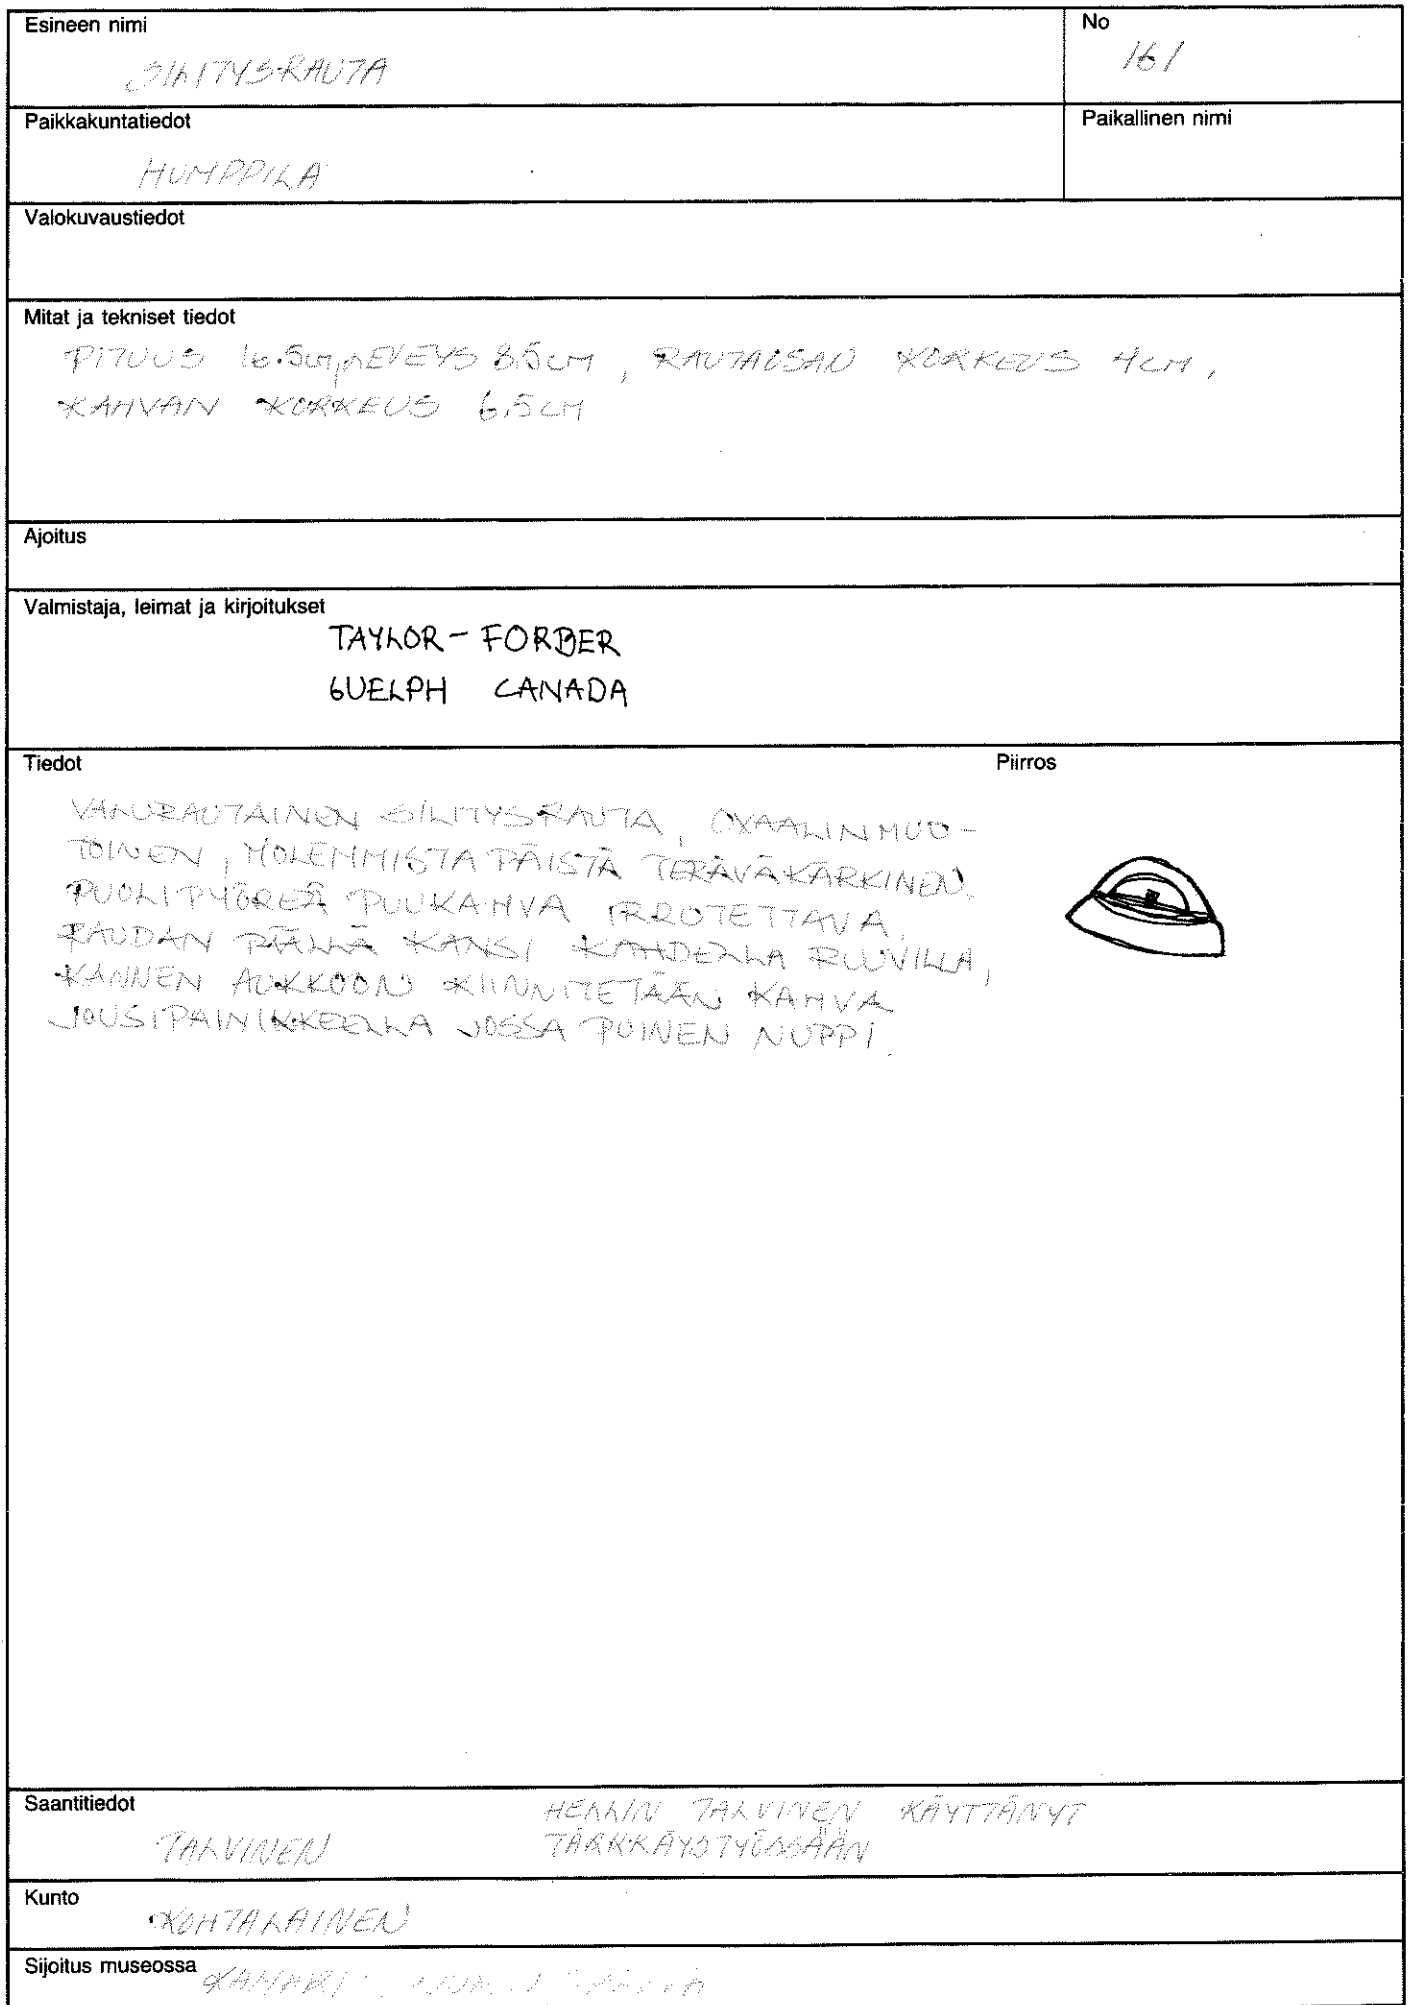 Esineen nimi
SILITYSRAUTA
No
161
Paikkakuntatiedot
HUMPPILA
Paikallinen nimi
Valokuvaustiedot
Mitat ja tekniset tiedot
PITUUS 16.5cm, LEVEYS 8.5cm, RAUTAOSAN KORKEUS 4cm,
KAHVAN KORKEUS 6.5cm
Ajoitus
Valmistaja, leimat ja kirjoitukset
TAYLOR - FORBER
GUELPH CANADA
Tiedot
Piirros
VALURAUTAINEN SILITYSRAUTA, OVAALINMUO-
TOINEN, MOLEMMISTA PÄISTÄ TERÄVÄKÄRKINEN.
PUOLIPYÖREÄ PUUKAHVA IRROTETTAVA.
RAUDAN PÄÄLLÄ KANSI KAHDELLA RUUVILLA,
KANNEN AUKKOON KIINNITETÄÄN KAHVA
JOUSIPAINIKKEELLA JOSSA PUINEN NUPPI.
Saantitiedot
TALVINEN
HELLIN TALVINEN KÄYTTÄNYT
TÄRKKÄYSTYÖSSÄÄN
Kunto
KOHTALAINEN
Sijoitus museossa
KAMARI